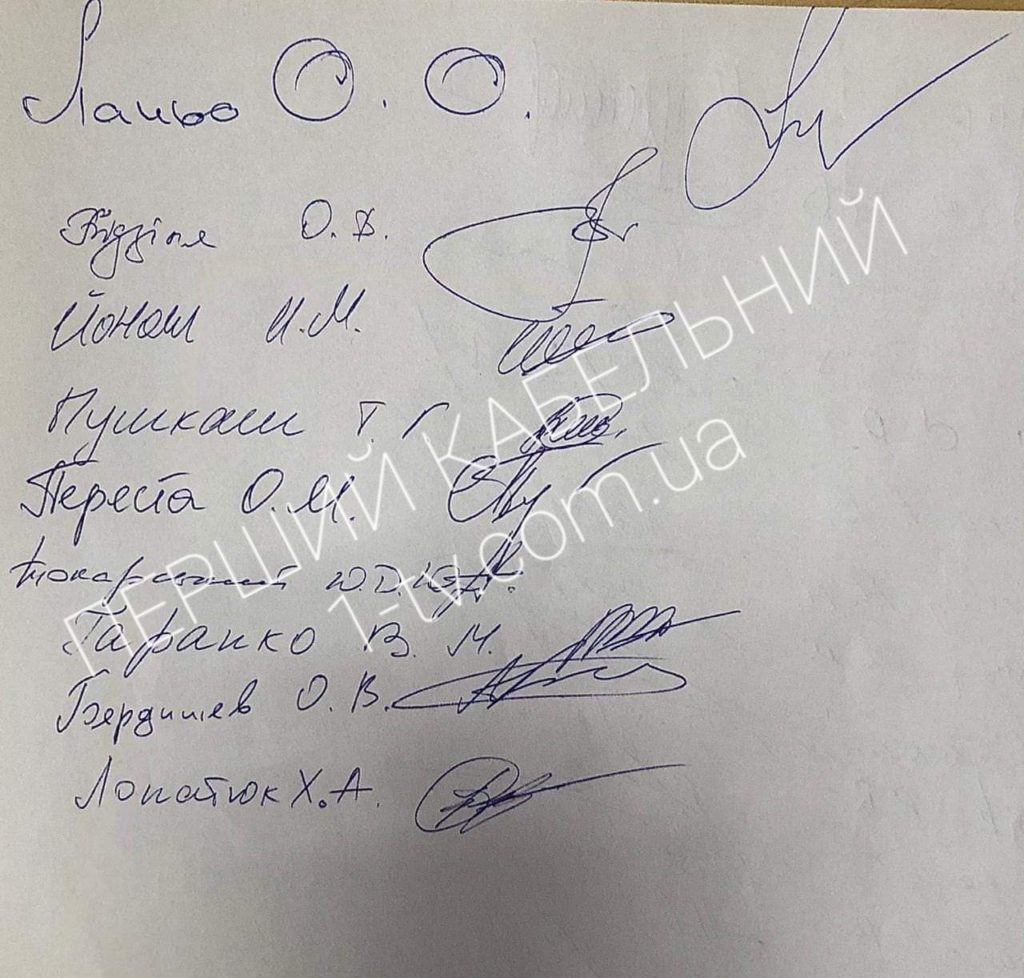 Ланьо О. О.
О. В.
Йонаш И.М.
Пушкаш Т. Г.
Переста О.М.
Ю.Д.
Гарапко В. М.
Бердишев О. В.
Лопатюк Х.А.
ПЕРШИЙ КАБЕЛЬНИЙ
1-tv.com.ua